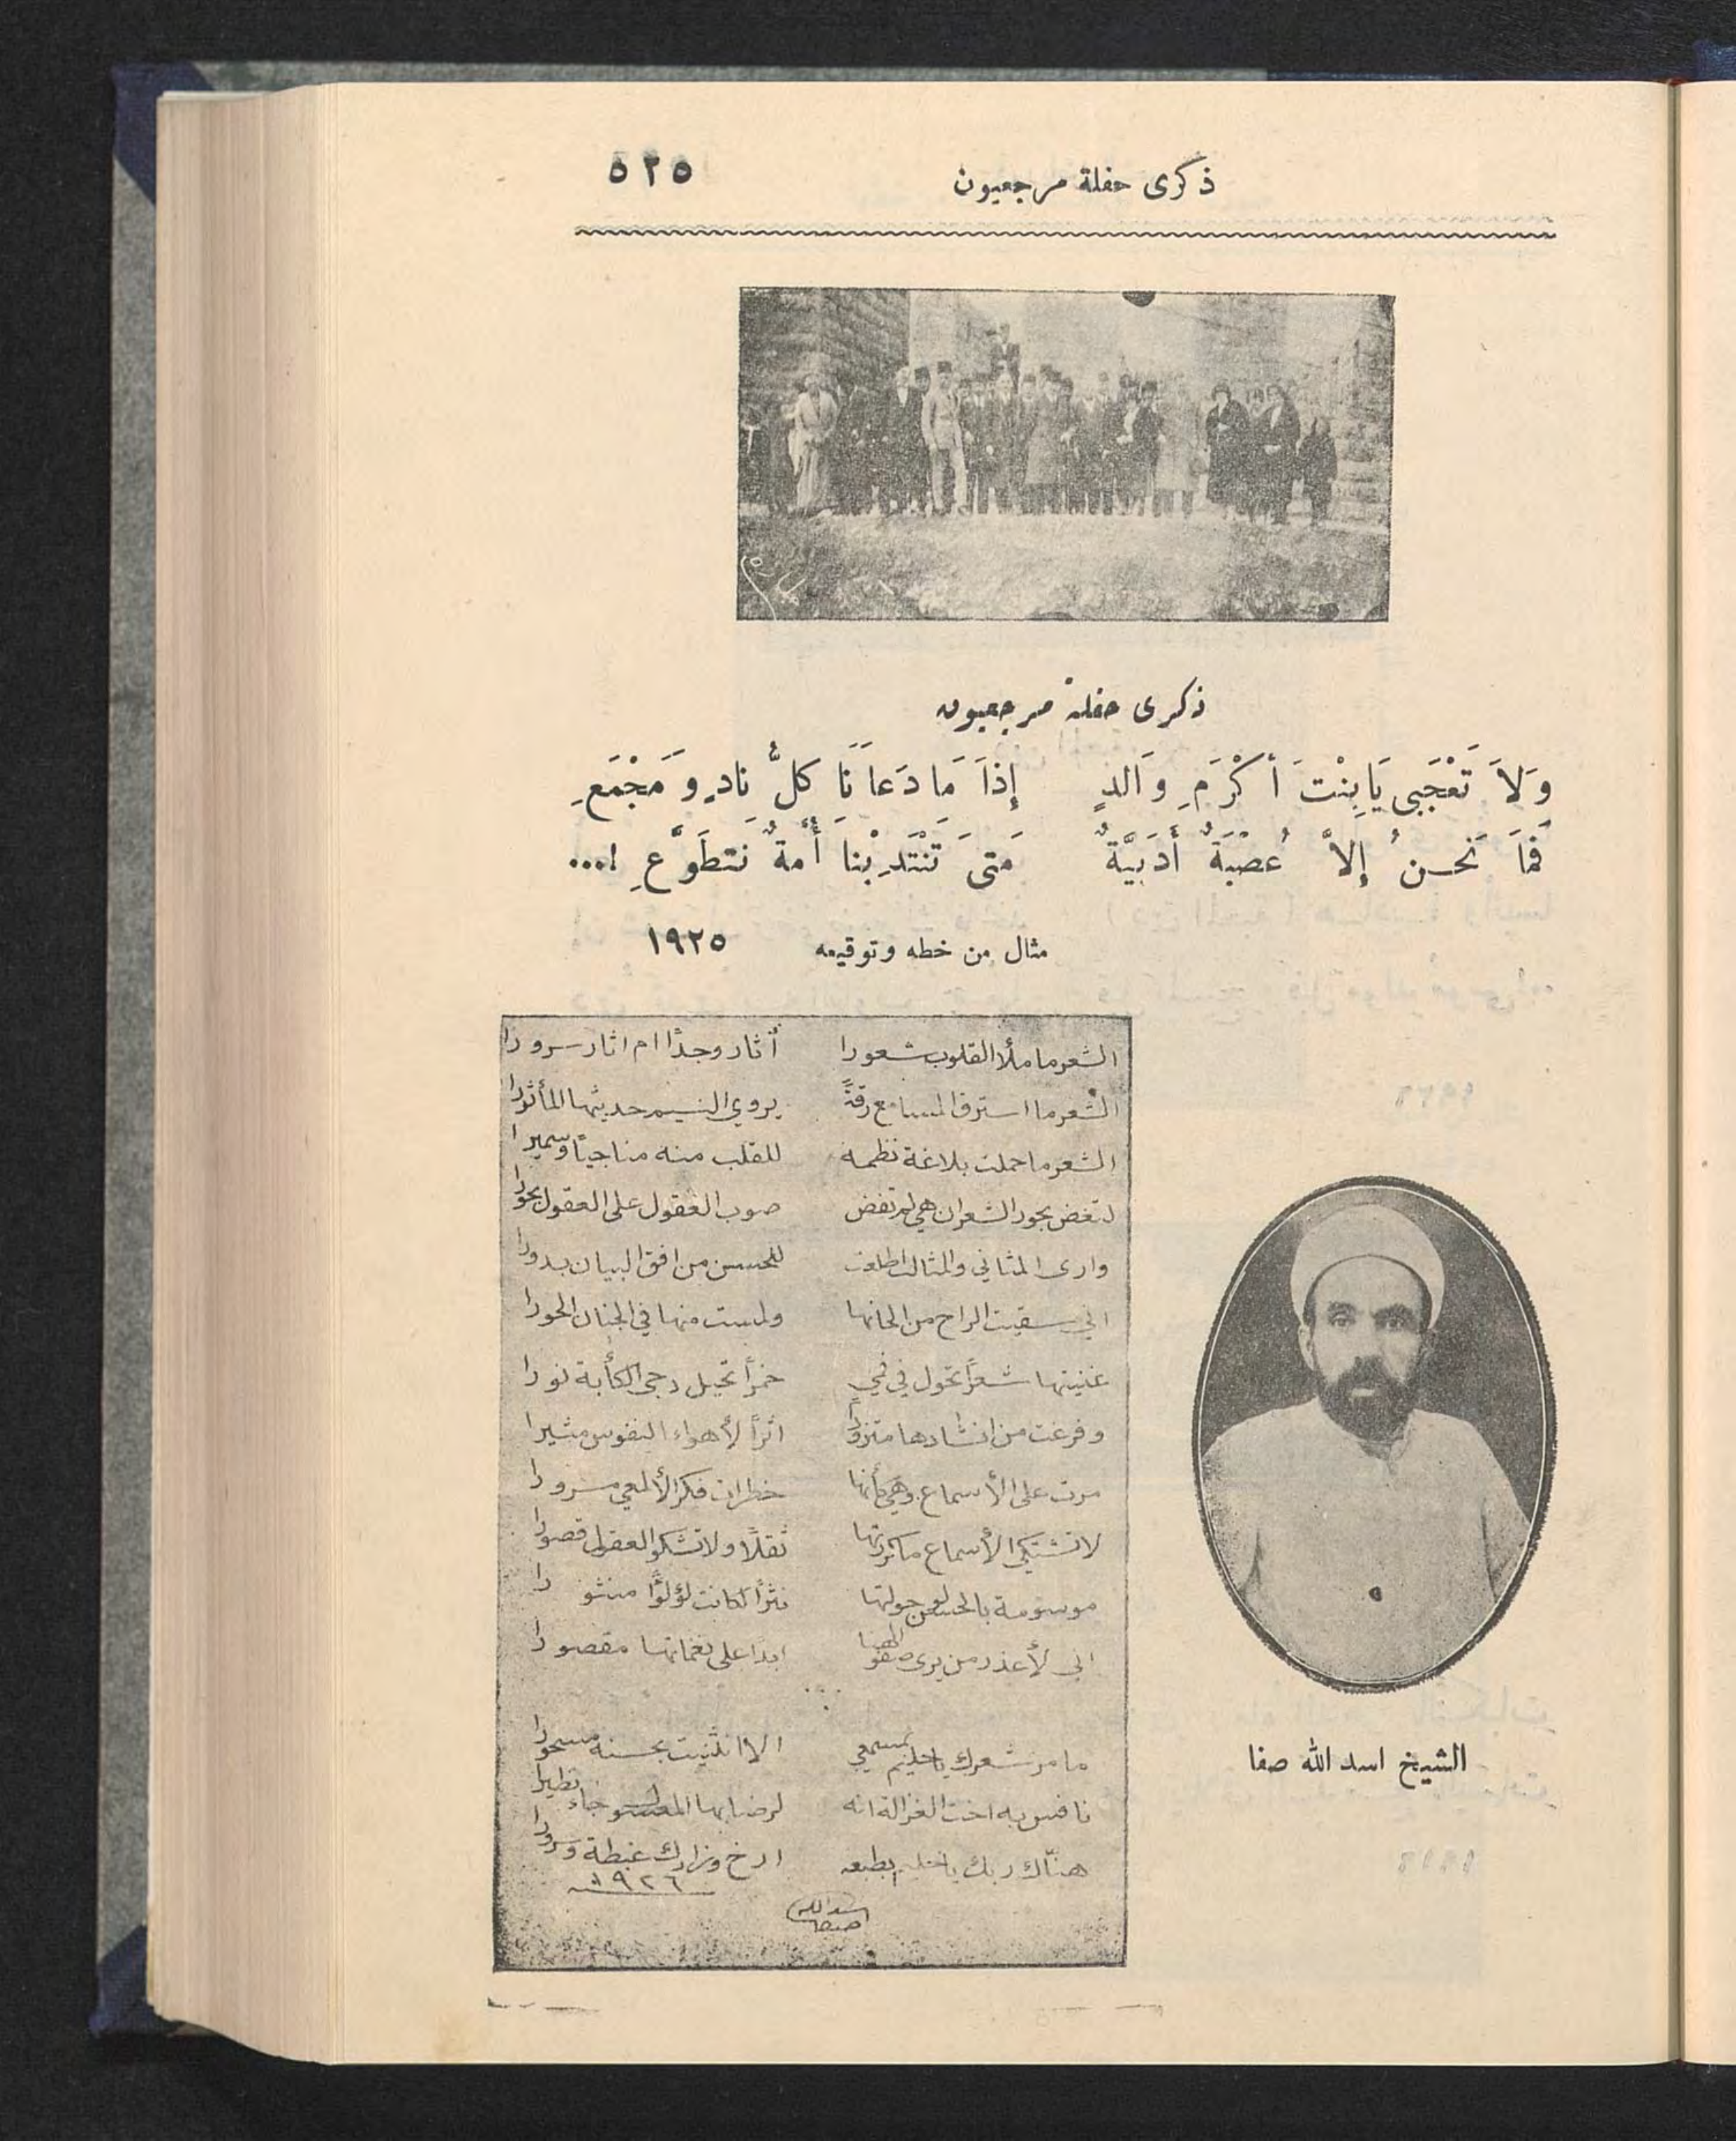 ذكرى حفلة مرجعيون ٥٢٥
ذكرى حفلة مرجعيون
وَلاَ تَعْجَبِي يَابِنْتَ أَكْرَمِ وَالدٍ إِذَا مَا دَعَانَا كلُّ نادٍ وَمَجْمَعِ
فَمَا نَحنُ إِلاَّ عُصْبَةٌ أَدَبِيَّةٌ مَتَى تَنْتَدِبْنا أُمةٌ نَتطَوَّعِ !...
مثال من خطه وتوقيعه ١٩٢٥
الشعر ما ملأ القلوب شعورا أثار وجدًا ام اثار سرورا
الشعر ما استرق المسامع رقةً يروي النسيم حديثها المأثورا
الشعر ما حملت بلاغة نظمه للقلب منه مناجيًا وسميرا
لتغض بحور الشعر ان هي لم تفض صوب العقول على العقول بحورا
وارى المثاني والمثالث اطلعت للحسن من افق البيان بدورا
اني سقيت الراح من الحانها ولمست منها في الجنان الحورا
غنيتها شعرًا تحول في فمي خمرًا تحيل دجى الكأبة نورا
وفرغت من انشادها متزودًا اثرًا لأهواء النفوس مثيرا
مرت على الأسماع وهي كأنها خطرات فكر الألمعي مرورا
لا تشتكي الأسماع ما كررتها ثقلًا ولا تشكو العقول قصورا
موسومة بالحسن حولتها نثرًا لكانت لؤلؤًا منثورا
اني لأعذر من يرى صفو الهنا ابدًا على نغماتها مقصورا
ما مر شعرك يا حليم بمسمعي الا انثنيت بحسنه مسحورا
نافس به اخت الغزالة انه لرضابها المعسول جاء نظيرا
هنّاك ربك يا حليم بطبعه ارخ وزادك غبطة وسرورا
١٩٢٦
اسد الله
صفا
الشيخ اسد الله صفا